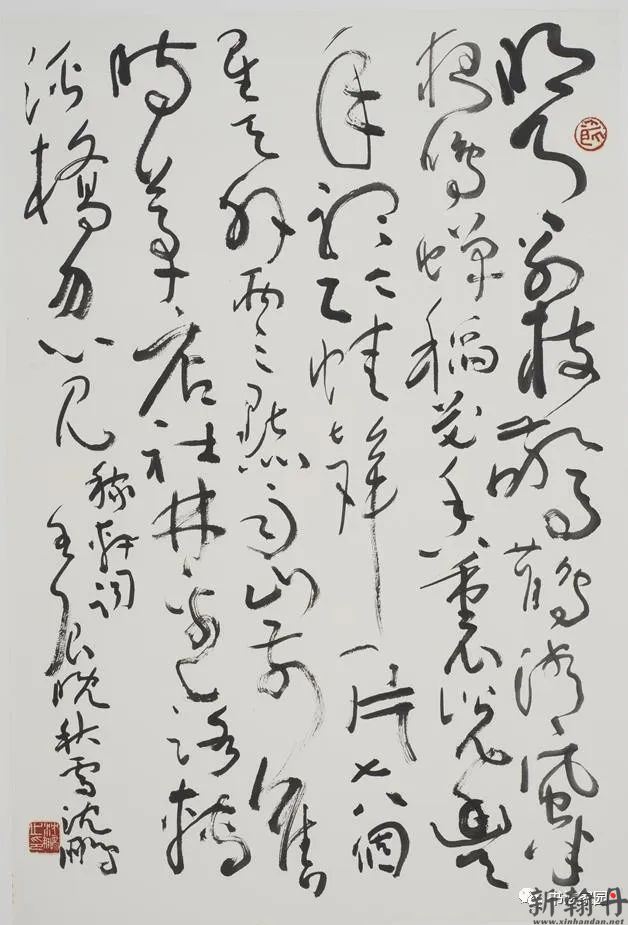 明月别枝驚鹊清風半
夜鳴蟬稻花香裏說豐
年聽取蛙聲一片七八個
星天外兩三點雨山前舊
時茅店社林邊路轉
溪橋忽見
稼軒詞
壬辰晚秋雪沈鵬
新翰丹
www.xinhandan.net